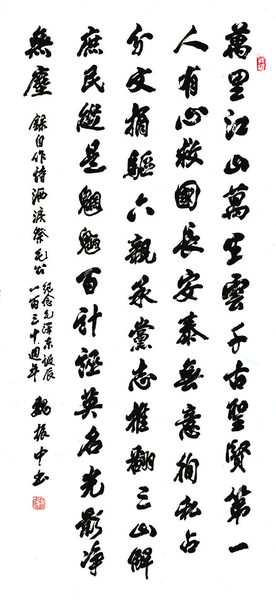 萬里江山萬生雲千古聖賢第一
人有心救國長安泰無意徇私占
分文捐軀六親永黨志推翻三山解
庶民縱是魍魎百計誣英名光影凈
無塵
錄自作詩灑淚祭毛公
紀念毛澤東誕辰
一百三十週年
魏振中書